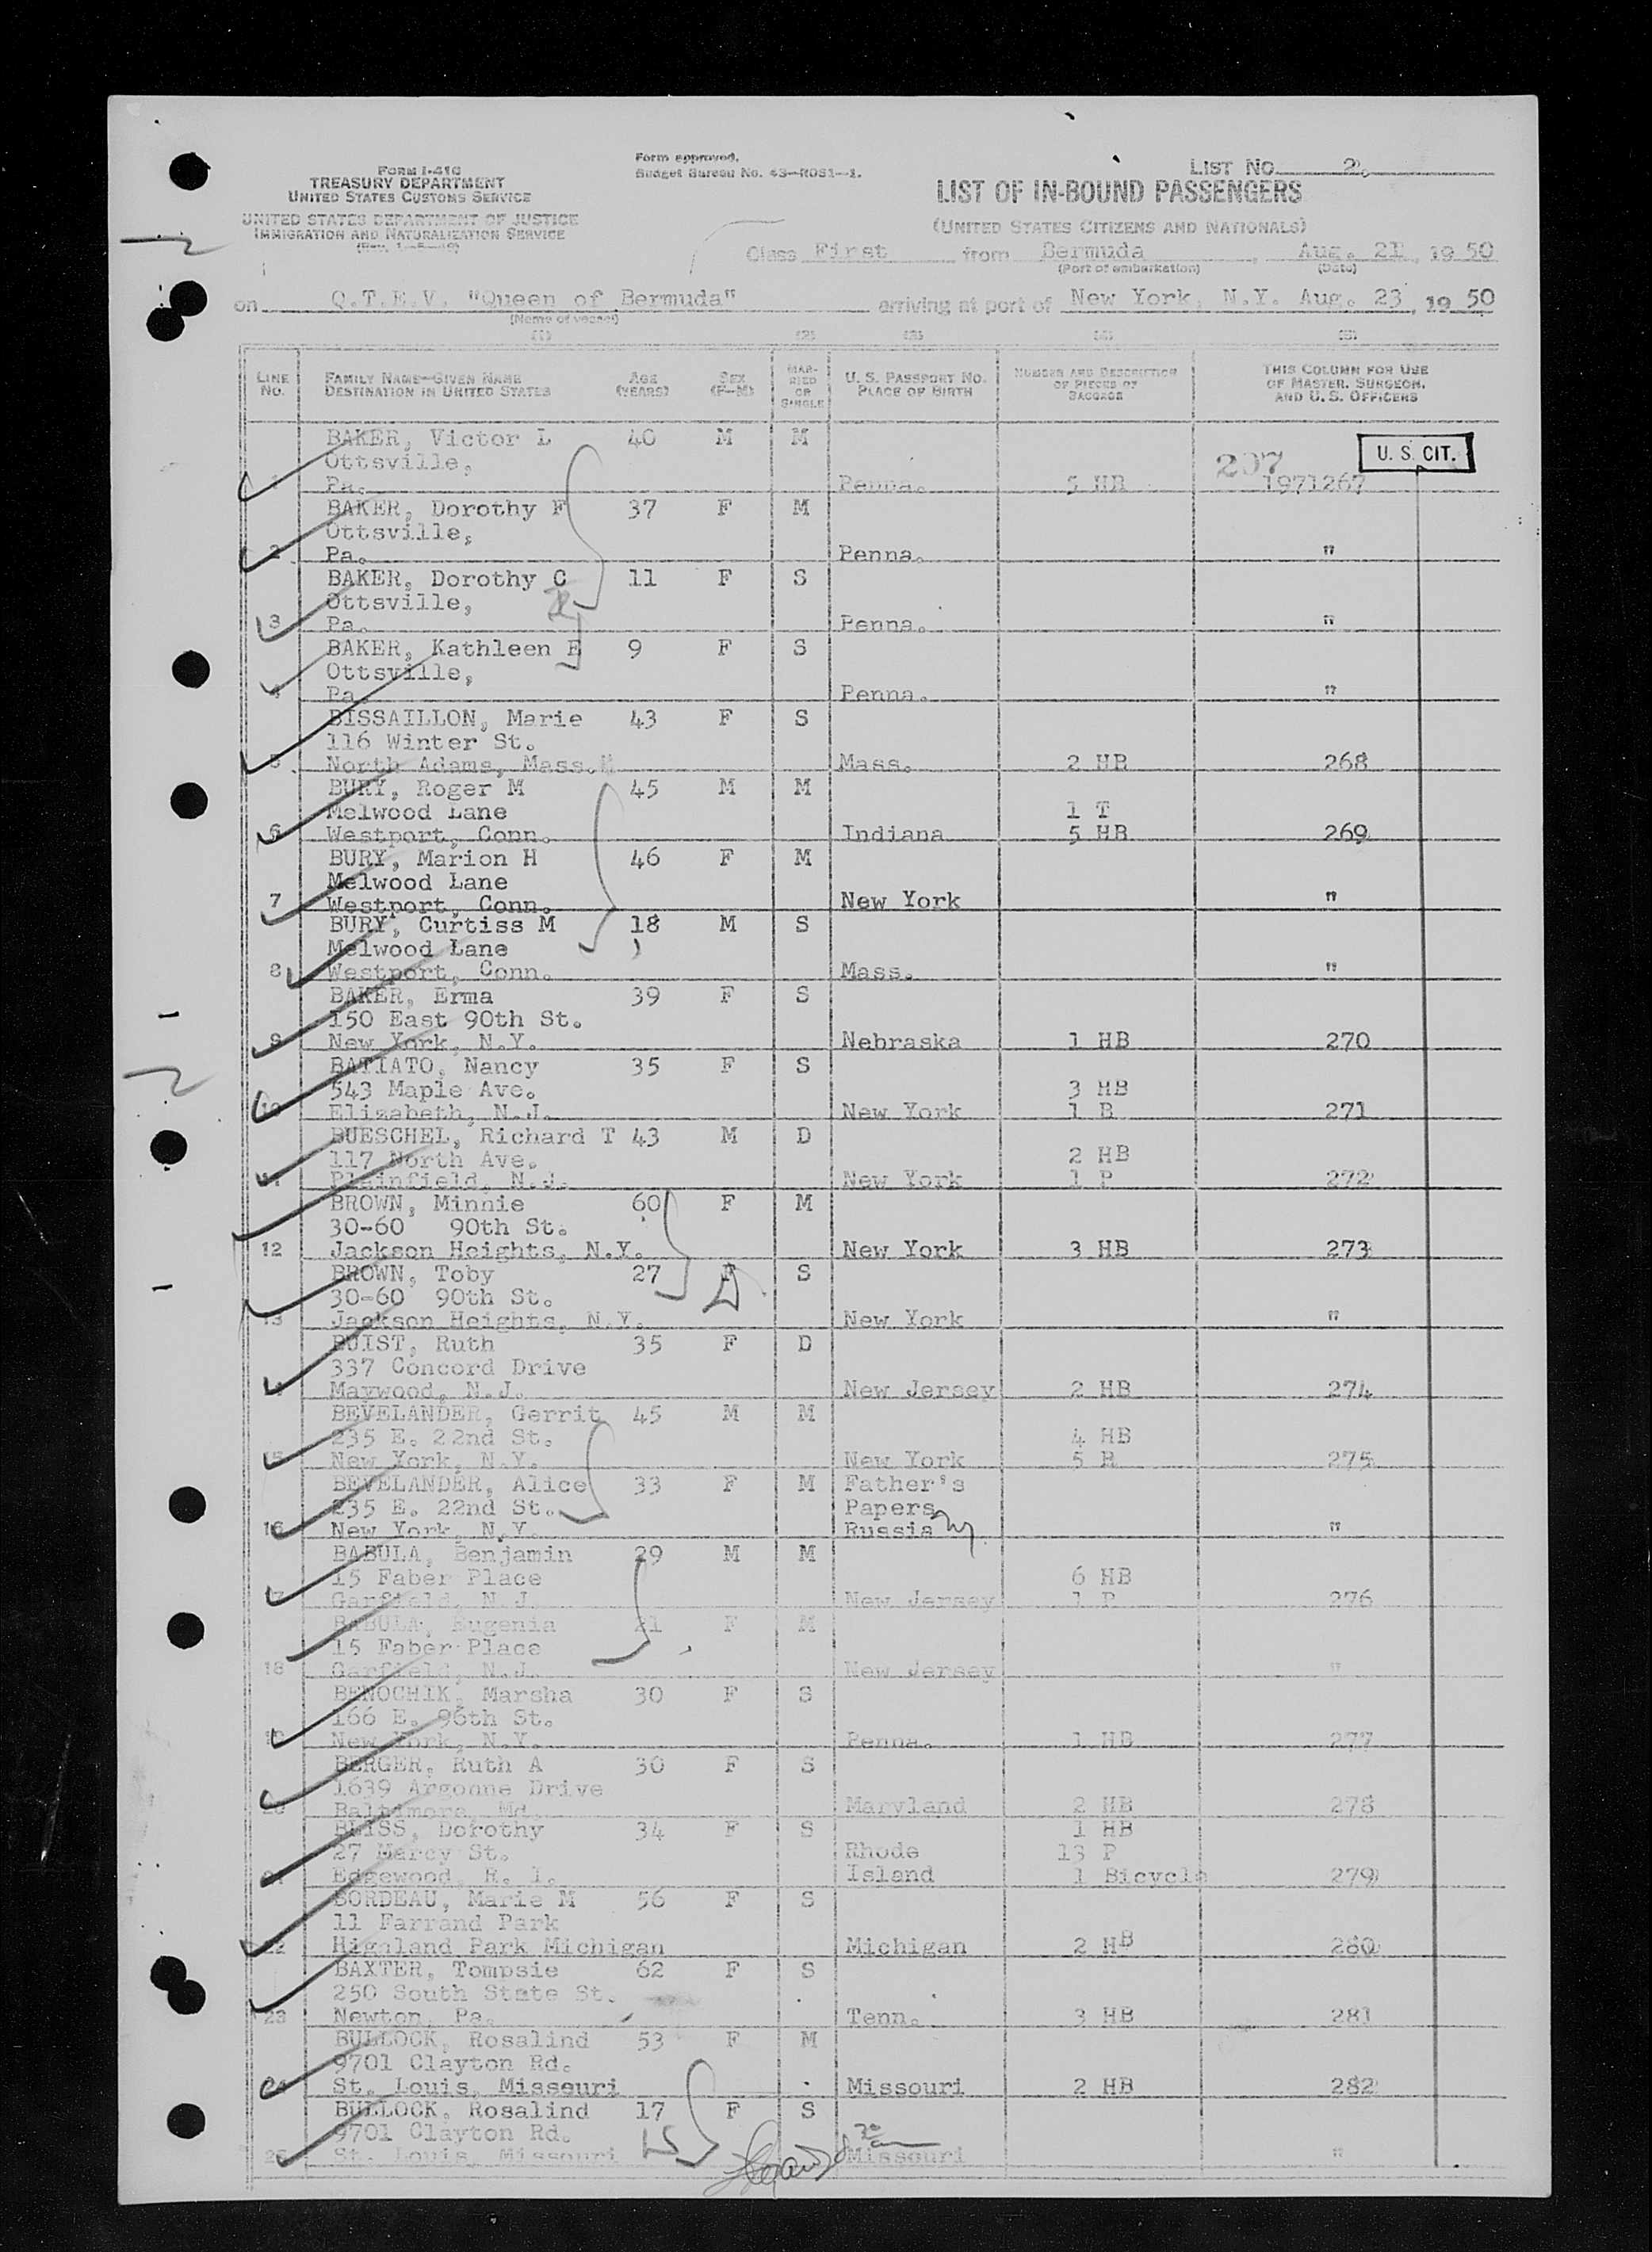 Form I-416
TREASURY DEPARTMENT
UNITED STATES CUSTOMS SERVICE
UNITED STATES DEPARTMENT OF JUSTICE
IMMIGRATION AND NATURALIZATION SERVICE
Form approved.
Budget Bureau No. 43—R051—1.
LIST NO. 2
LIST OF IN-BOUND PASSENGERS
(UNITED STATES CITIZENS AND NATIONALS)
Class First from Bermuda, Aug. 21, 19 50
(Port of embarkation) (Date)
on Q.T.E.V. "Queen of Bermuda" arriving at port of New York, N.Y. Aug. 23, 19 50
(Name of vessel)
(1) (2) (3) (4) (5)
LINE NO. FAMILY NAME—GIVEN NAME DESTINATION IN UNITED STATES AGE (YEARS) SEX (F—M) MARRIED OR SINGLE U. S. PASSPORT NO. PLACE OF BIRTH NUMBER AND DESCRIPTION OF PIECES OF BAGGAGE THIS COLUMN FOR USE OF MASTER, SURGEON, AND U. S. OFFICERS
BAKER, Victor L 40 M M
Ottsville, 207 U. S. CIT.
Pa. Penna. 5 HB 1971267
BAKER, Dorothy F 37 F M
Ottsville,
2 Pa. Penna. "
BAKER, Dorothy C 11 F S
Ottsville,
3 Pa. Penna. "
BAKER, Kathleen E 9 F S
Ottsville,
4 Pa. Penna. "
BISSAILLON, Marie 43 F S
116 Winter St.
5 North Adams, Mass. Mass. 2 HB 268
BURY, Roger M 45 M M
Melwood Lane 1 T
6 Westport, Conn. Indiana 5 HB 269
BURY, Marion H 46 F M
Melwood Lane
7 Westport, Conn. New York "
BURY, Curtiss M 18 M S
Melwood Lane
8 Westport, Conn. Mass. "
BAKER, Erma 39 F S
150 East 90th St.
9 New York, N.Y. Nebraska 1 HB 270
BATIATO, Nancy 35 F S
543 Maple Ave. 3 HB
10 Elizabeth, N.J. New York 1 B 271
BUESCHEL, Richard T 43 M D
117 North Ave. 2 HB
11 Plainfield, N.J. New York 1 P 272
BROWN, Minnie 60 F M
30-60 90th St.
12 Jackson Heights, N.Y. New York 3 HB 273
BROWN, Toby 27 F S
30-60 90th St.
13 Jackson Heights, N.Y. New York "
BUIST, Ruth 35 F D
337 Concord Drive
Maywood, N.J. New Jersey 2 HB 274
BEVELANDER, Gerrit 45 M M
235 E. 22nd St. 4 HB
15 New York, N.Y. New York 5 B 275
BEVELANDER, Alice 33 F M Father's
235 E. 22nd St. Papers
16 New York, N.Y. Russia "
BABULA, Benjamin 29 M M
15 Faber Place 6 HB
17 Garfield, N.J. New Jersey 1 P 276
BABULA, Eugenia 21 F M
15 Faber Place
18 Garfield, N.J. New Jersey "
BENOCHIK, Marsha 30 F S
166 E. 96th St.
19 New York, N.Y. Penna. 1 HB 277
BERGER, Ruth A 30 F S
1639 Argonne Drive
20 Baltimore, Md. Maryland 2 HB 278
BLISS, Dorothy 34 F S 1 HB
27 Marcy St. Rhode 13 P
21 Edgewood, R. I. Island 1 Bicycle 279
BORDEAU, Marie M 56 F S
11 Farrand Park
22 Highland Park Michigan Michigan 2 HB 280
BAXTER, Tompsie 62 F S
250 South State St.
23 Newton, Pa. Tenn. 3 HB 281
BULLOCK, Rosalind 53 F M
9701 Clayton Rd.
24 St. Louis, Missouri Missouri 2 HB 282
BULLOCK, Rosalind 17 F S
9701 Clayton Rd.
25 St. Louis, Missouri Missouri "